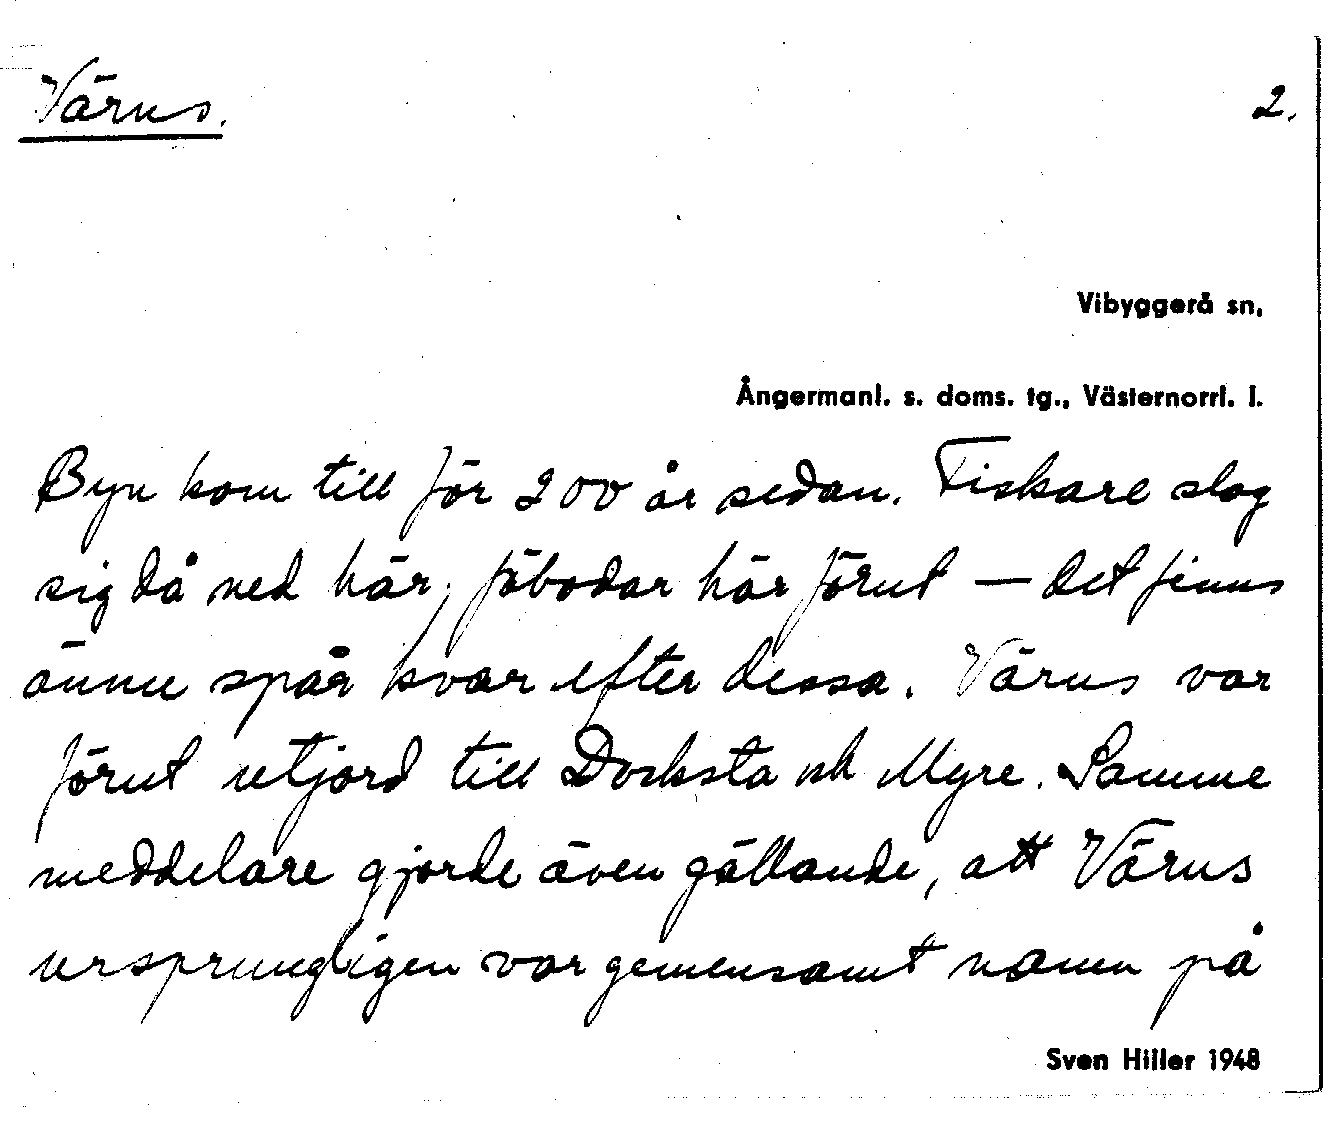 Värns.
2.
Vibyggerå sn,
Ångermanl. s. doms. tg., Västernorrl. l.
Byn kom till för 200 år sedan. Fiskare slog
sig då ned här, fäbodar här förut — det finns
ännu spår kvar efter dessa. Värns var
förut utjord till Docksta och Myre. Samme
meddelare gjorde även gällande, att Värns
ursprungligen var gemensamt namn på
Sven Hiller 1948